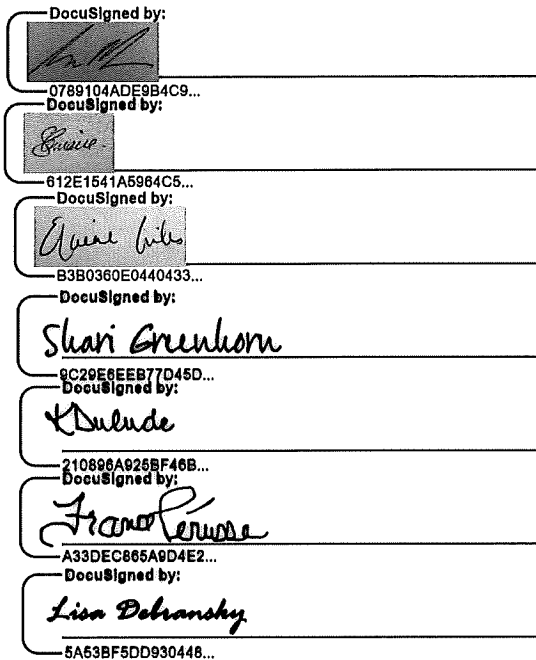 DocuSigned by:
0789104ADE9B4C9...
DocuSigned by:
612E1541A5964C5...
DocuSigned by:
B3B0360E0440433...
DocuSigned by:
Shari Greenhorn
9C29E6EEB77D45D...
DocuSigned by:
KDulude
210896A925BF46B...
DocuSigned by:
France Pérusse
A33DEC865A9D4E2...
DocuSigned by:
Lisa Debransky
5A53BF5DD930448...